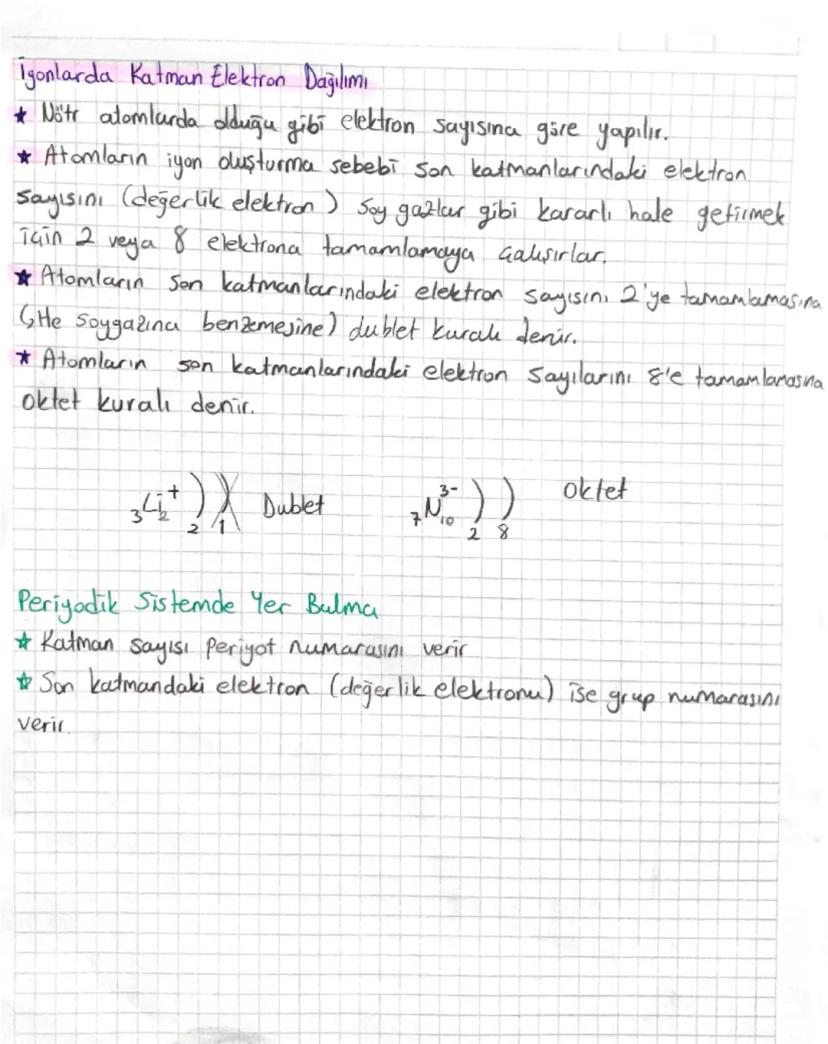 İyonlarda Katman Elektron Dağılımı
★ Nötr atomlarda olduğu gibi elektron sayısına göre yapılır.
★ Atomların iyon oluşturma sebebi son katmanlarındaki elektron
sayısını (değerlik elektron) Soy gazlar gibi kararlı hale getirmek
için 2 veya 8 elektrona tamamlamaya çalışırlar.
★ Atomların son katmanlarındaki elektron sayısını 2'ye tamamlamasına
(He soygazına benzemesine) dublet kuralı denir.
★ Atomların son katmanlarındaki elektron sayılarını 8'e tamamlamasına
oktet kuralı denir.
₃Li₂⁺ ) ) Dublet ₇N₁₀³⁻ ) ) oktet
2 1 2 8
Periyodik Sistemde Yer Bulma
★ Katman sayısı periyot numarasını verir
★ Son katmandaki elektron (değerlik elektronu) ise grup numarasını
verir.